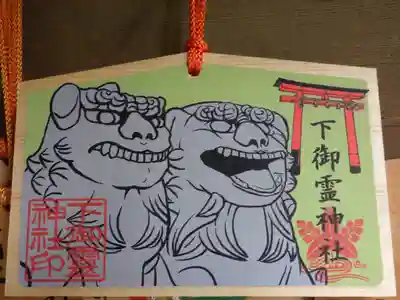 下御霊神社
下御霊
神社印